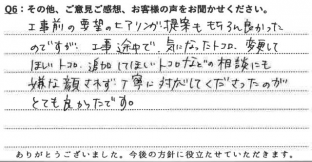 Q6：その他、ご意見ご感想、お客様の声をお聞かせください。
工事前の要望のヒアリングが提案ももちろん良かった
のですが、工事途中で、気になったトコロ、変更して
ほしいトコロ、追加してほしいトコロなどの相談にも
嫌な顔されず丁寧に対応してくださったのが
とても良かったです。
ありがとうございました。今後の方針に役立たせていただきます。